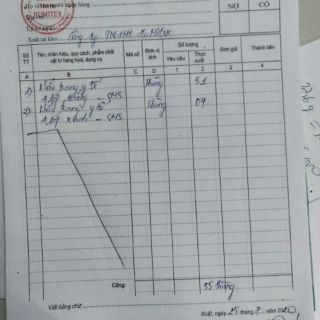 HUMITEX
NỢ CÓ
Xuất tại kho: Công ty TNHH Humitex
Số TT Tên, nhãn hiệu, quy cách, phẩm chất vật tư hàng hoá, dụng cụ Mã số Đơn vị tính Số lượng Đơn giá Thành tiền
Yêu cầu Thực xuất
A B C D 1 2 3 4
1) Khẩu trang y tế thùng 51
4 lớp trắng _ SMS
2) Khẩu trang y tế thùng 04
4 lớp xanh _ SMS
Cộng: 55 thùng
Viết bằng chữ
Xuất, ngày 25 tháng 7 năm 2020